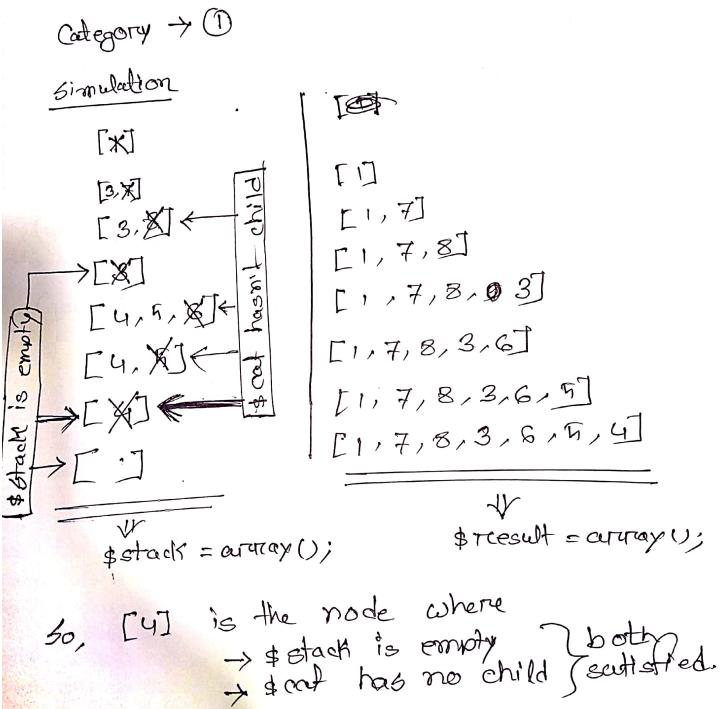 Category → ①
Simulation
[1]
[3,7]
[3,8]
[3]
[4,5,6]
[4,5]
[4]
[ ]
$stack is empty
$cat hasn't child
[1]
[1,7]
[1,7,8]
[1,7,8,3]
[1,7,8,3,6]
[1,7,8,3,6,5]
[1,7,8,3,6,5,4]
$stack = array();
$result = array();
So, [4] is the node where
→ $stack is empty
→ $cat has no child
both
satisfied.